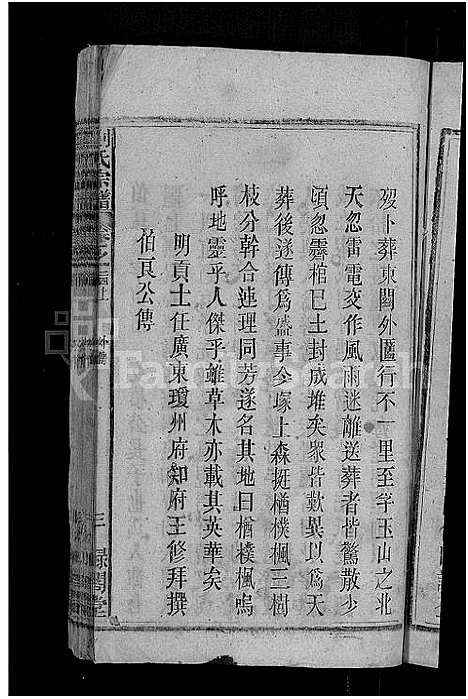 歿卜葬東關外匶行不一里至孚玉山之北
天忽雷電交作風雨迷離送葬者皆驚散少
頃忽霽棺已土封成堆矣衆皆歎異以爲天
葬後遂傳爲盛事今塚上森挺楢樸楓三樹
枝分幹合連理同芳遂名其地曰楢樸楓嗚
呼地靈乎人傑乎雖草木亦載其英華矣
明貢士任廣東瓊州府知府王修拜撰
伯良公傳
劉氏宗譜
三
祿閣堂
FamilySearch